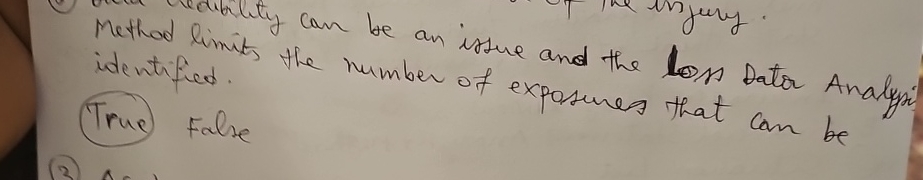 of the injury.
credibility can be an issue and the Loss Data Analysi
Method limits the number of exposures that can be
identified.
True False
3